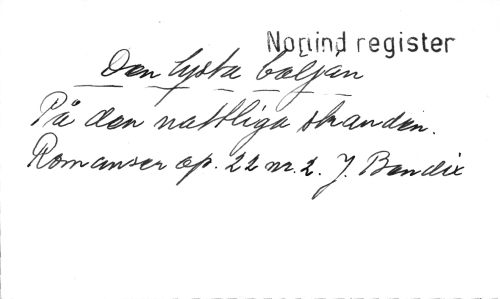 Norrind register
Den lysta böljan
På den nattliga stranden.
Romanser op. 22 nr. 2. J. Bendix